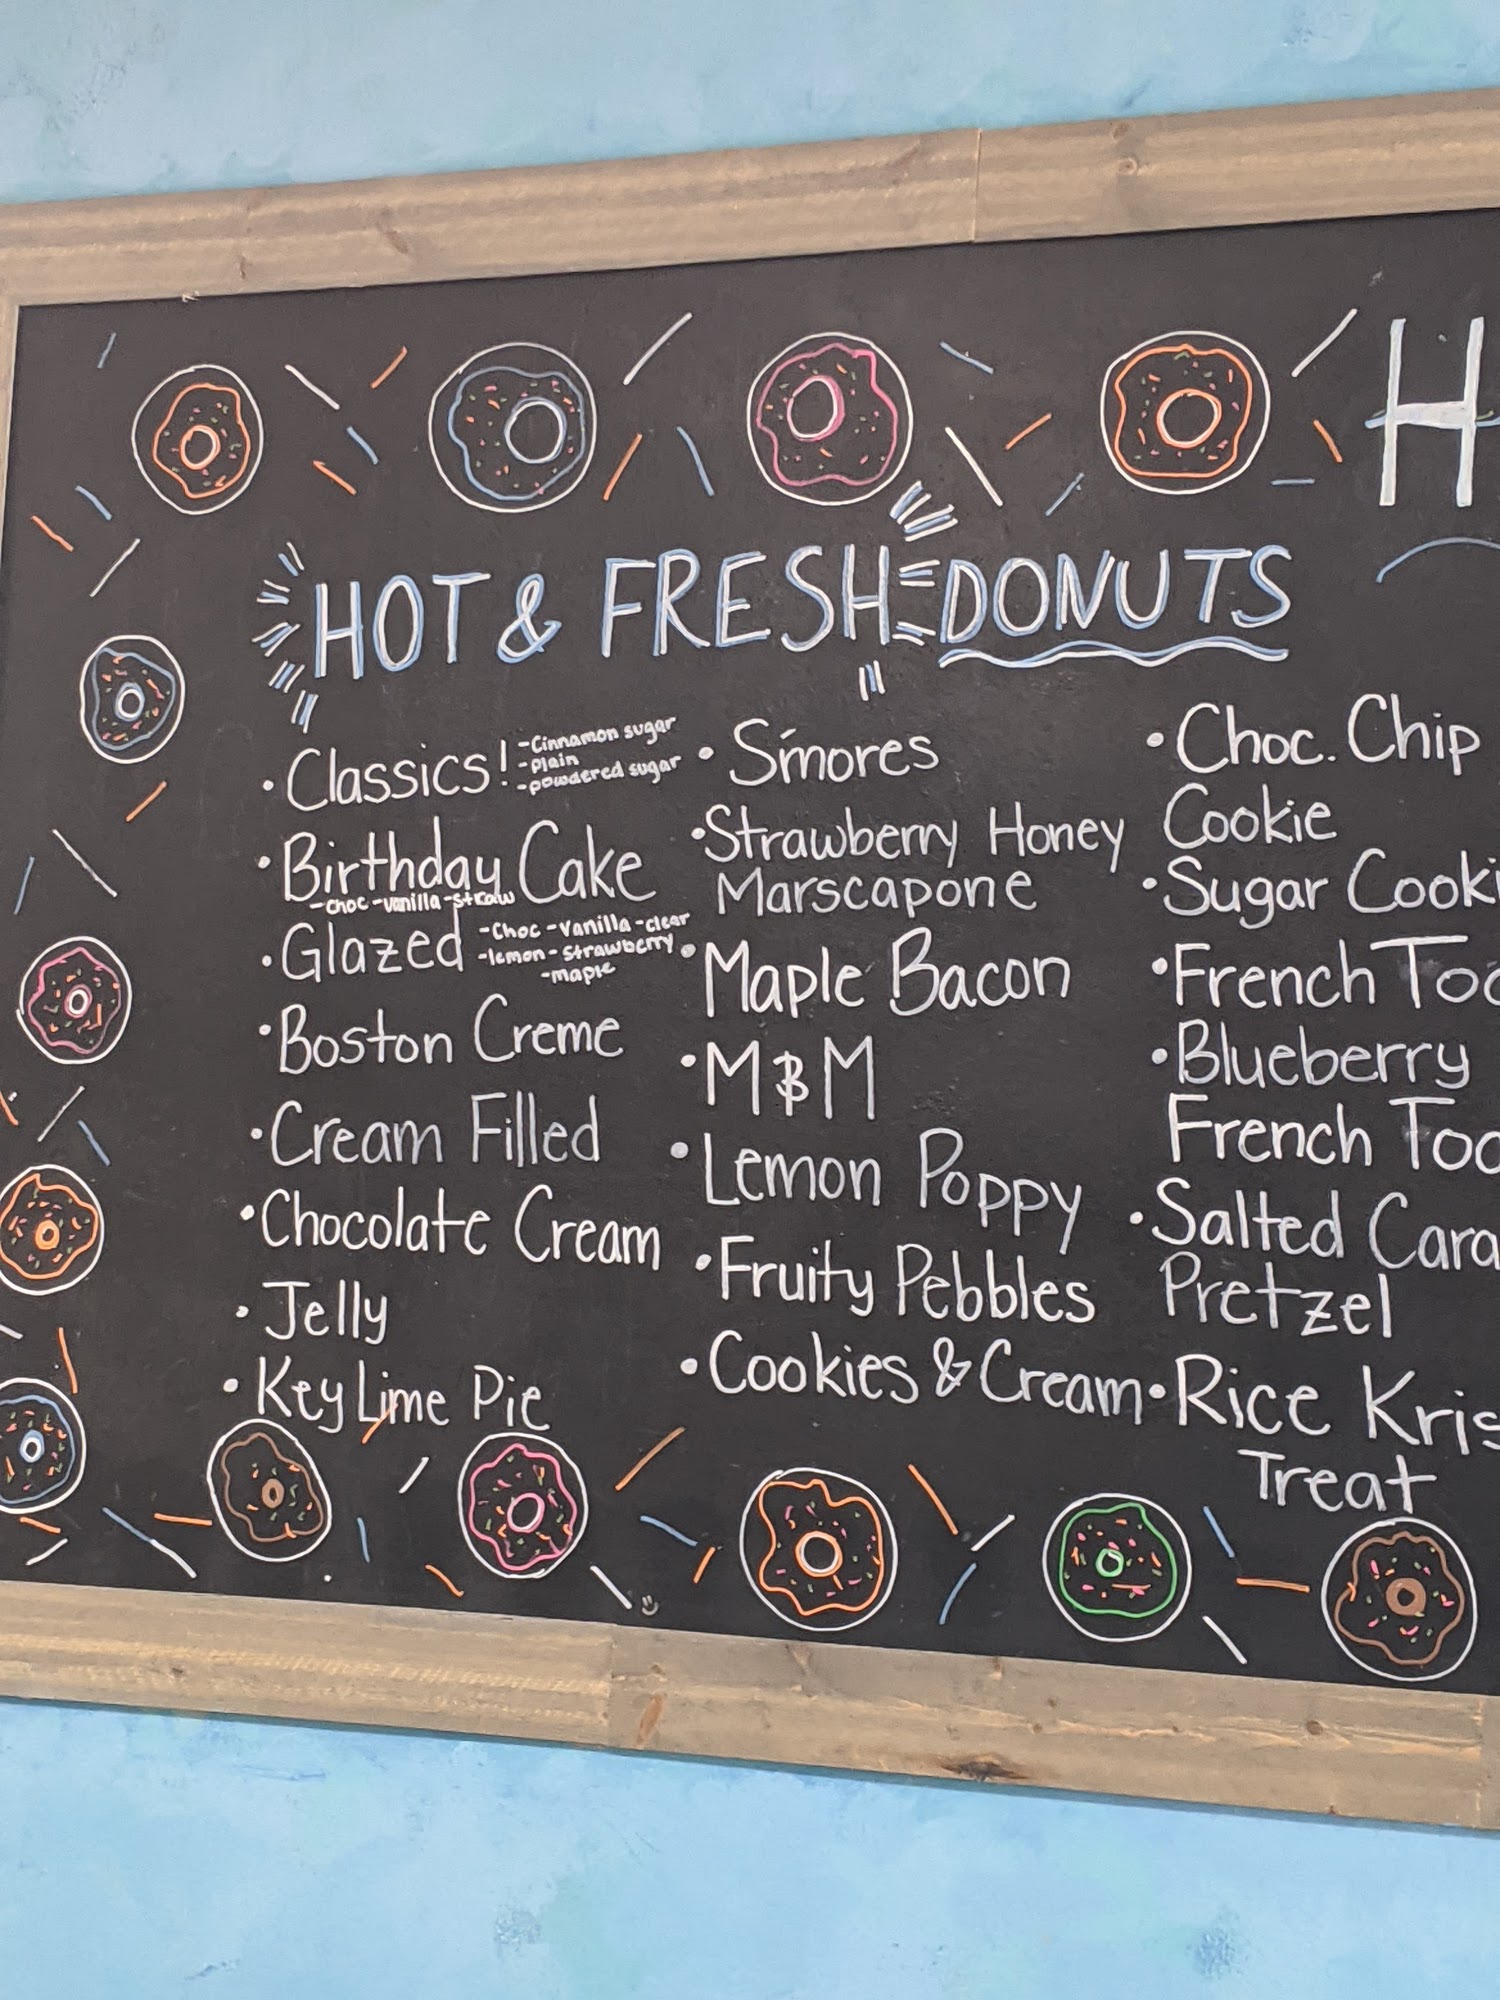 H
HOT & FRESH DONUTS
• Classics!
-Cinnamon sugar
-plain
-powdered sugar
• Birthday Cake
-choc -vanilla -straw
• Glazed
-Choc -Vanilla -clear
-lemon -strawberry
-maple
• Boston Creme
• Cream Filled
• Chocolate Cream
• Jelly
• Key Lime Pie
• S'mores
• Strawberry Honey
Marscapone
• Maple Bacon
• M&M
• Lemon Poppy
• Fruity Pebbles
• Cookies & Cream
• Choc. Chip
Cookie
• Sugar Cooki
• French Toa
• Blueberry
French Toa
• Salted Cara
Pretzel
• Rice Kris
Treat